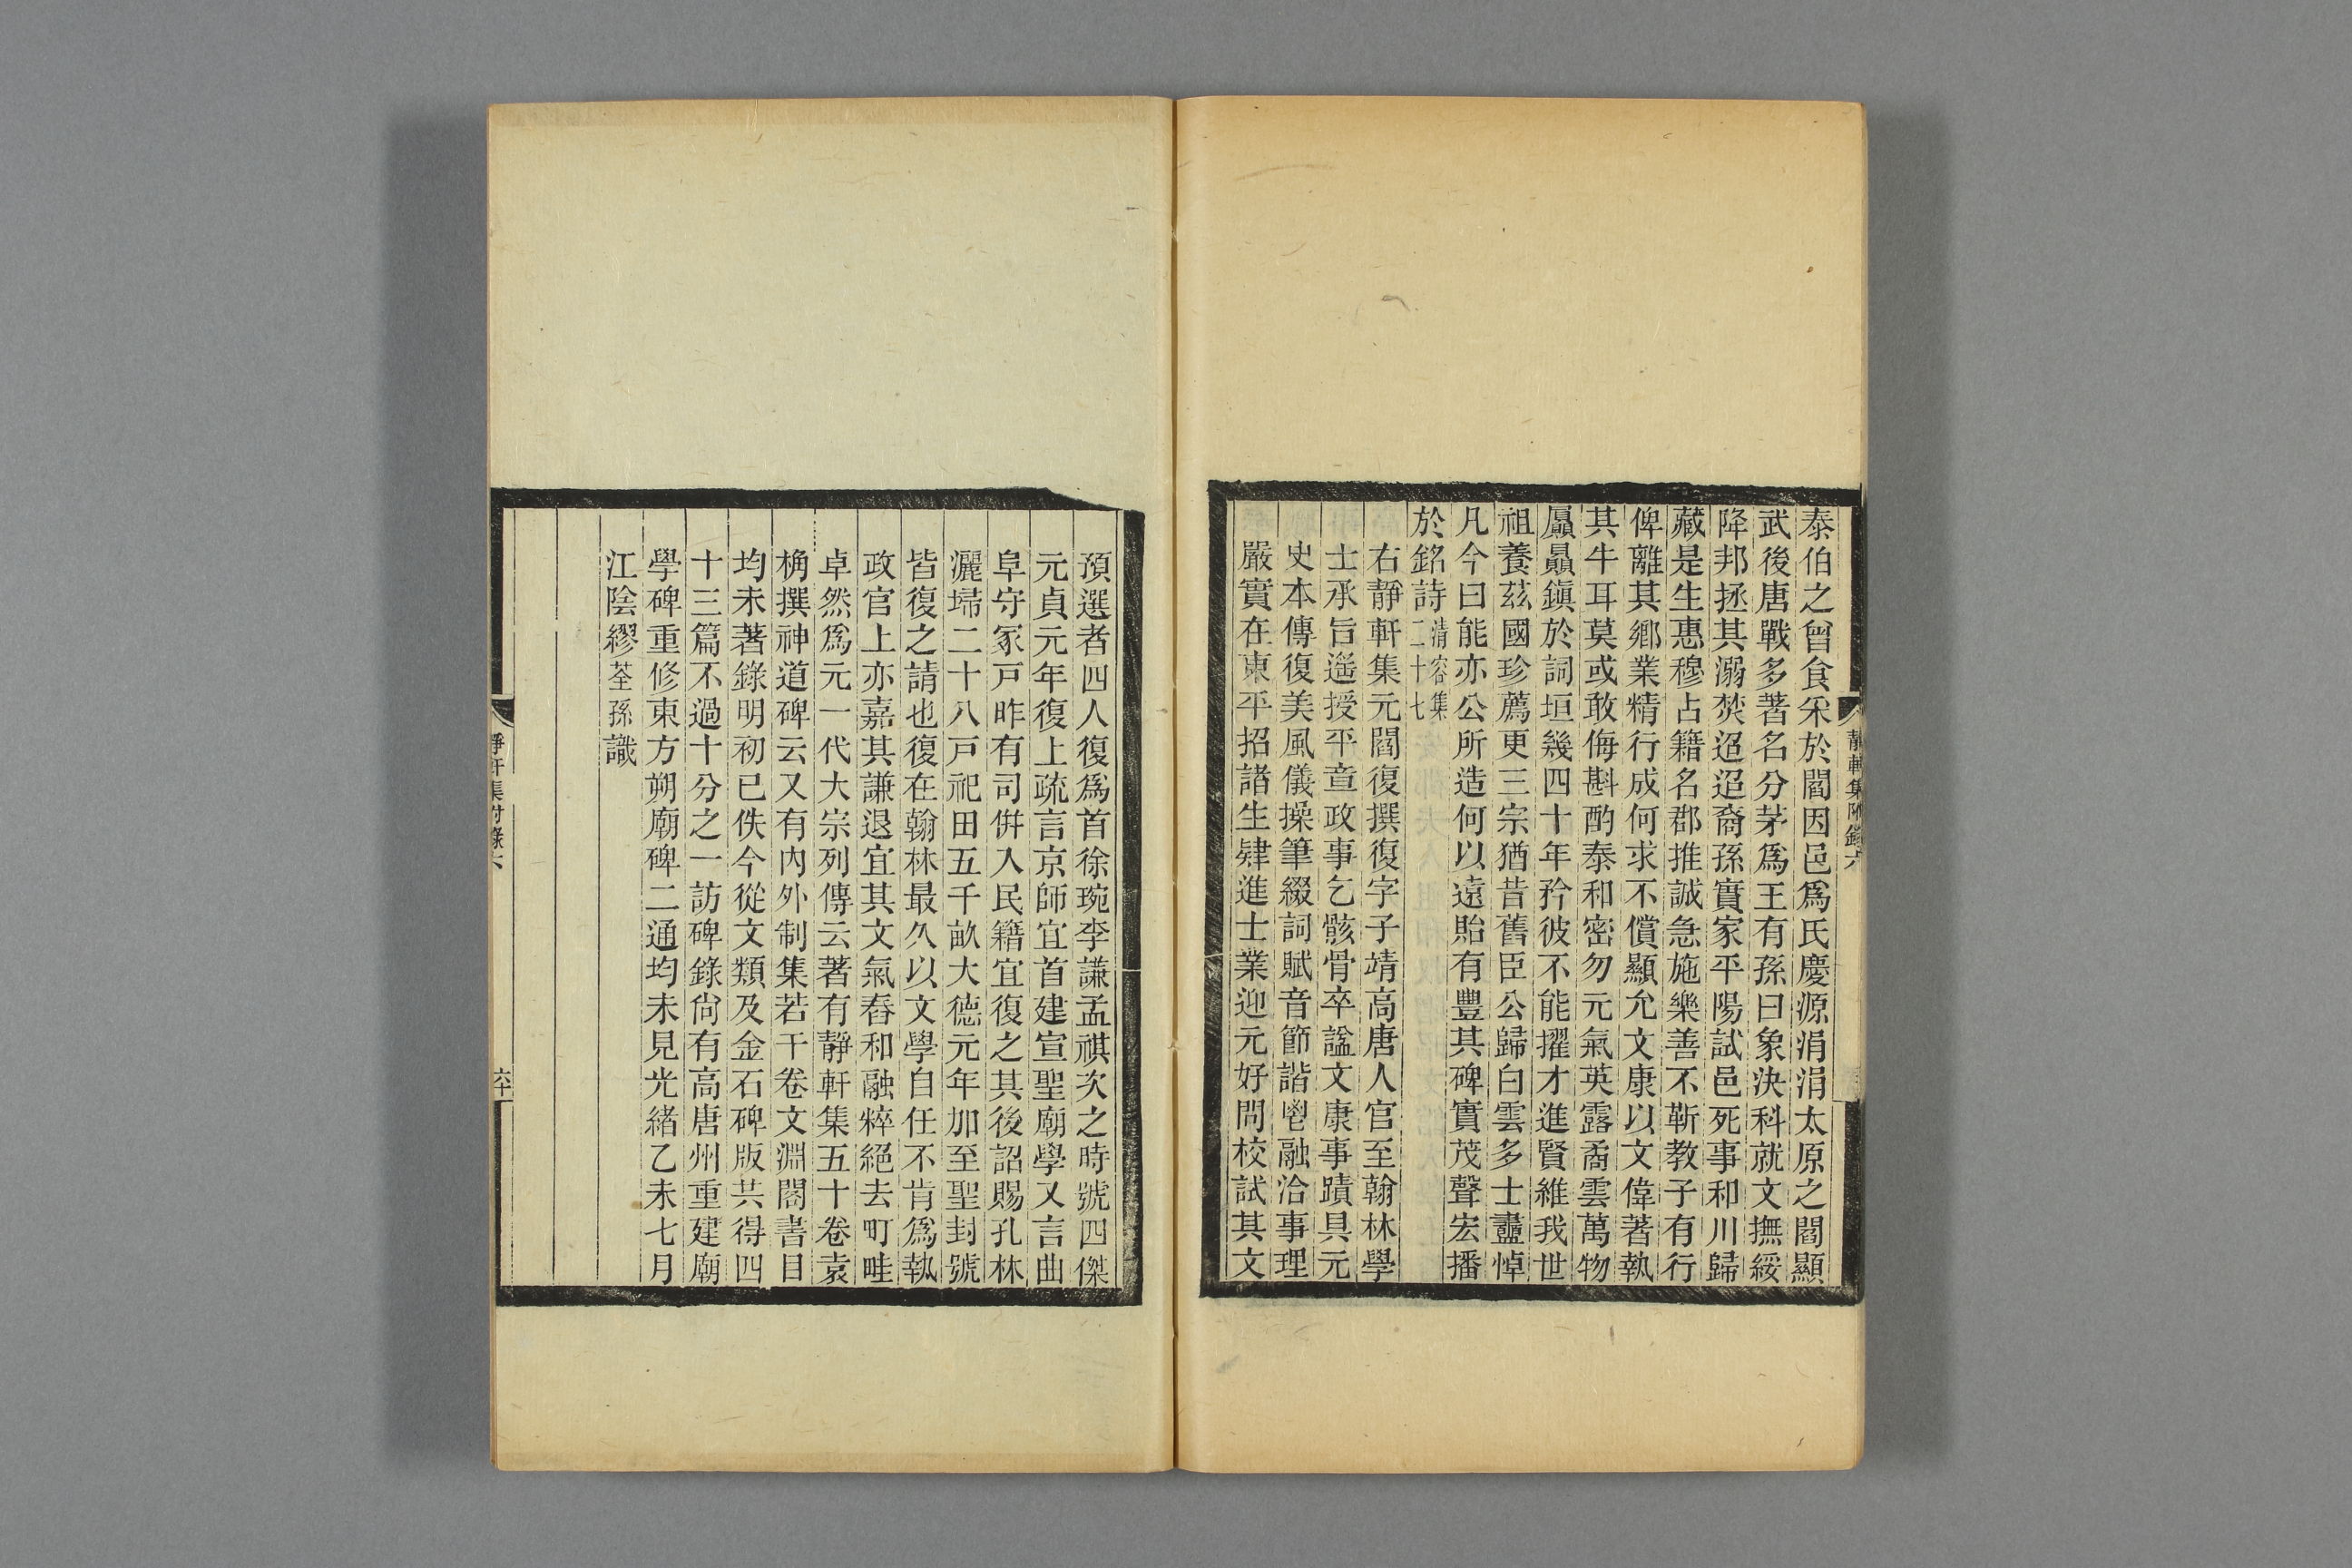 泰伯之曾食采於閻因邑爲氏慶源涓涓太原之閻顯
武後唐戰多著名分茅爲王有孫曰象決科就文撫綏
降邦拯其溺焚迢迢裔孫實家平陽試邑死事和川歸
藏是生惠穆占籍名郡推誠急施樂善不靳教子有行
俾離其鄉業精行成何求不償顯允文康以文偉著執
其牛耳莫或敢侮斟酌泰和密勿元氣英露矞雲萬物
屭贔鎭於詞垣幾四十年矜彼不能擢才進賢維我世
祖養茲國珍薦更三宗猶昔舊臣公歸白雲多士衋悼
凡今曰能亦公所造何以遠貽有豐其碑實茂聲宏播
於銘詩清容集二十七
右靜軒集元閻復撰復字子靖高唐人官至翰林學
士承旨遥授平章政事乞骸骨卒諡文康事蹟具元
史本傳復美風儀操筆綴詞賦音節諧鬯融洽事理
嚴實在東平招諸生肄進士業迎元好問校試其文
靜軒集附錄六
預選者四人復爲首徐琬李謙孟祺次之時號四傑
元貞元年復上疏言京師宜首建宣聖廟學又言曲
阜守冢戸昨有司併入民籍宜復之其後詔賜孔林
灑埽二十八戸祀田五千畝大德元年加至聖封號
皆復之請也復在翰林最久以文學自任不肯爲執
政官上亦嘉其謙退宜其文氣舂和融粹絕去町畦
卓然爲元一代大宗列傳云著有靜軒集五十卷袁
桷撰神道碑云又有內外制集若干卷文淵閣書目
均未著錄明初已佚今從文類及金石碑版共得四
十三篇不過十分之一訪碑錄尙有高唐州重建廟
學碑重修東方朔廟碑二通均未見光緒乙未七月
江陰繆荃孫識
靜軒集附錄六